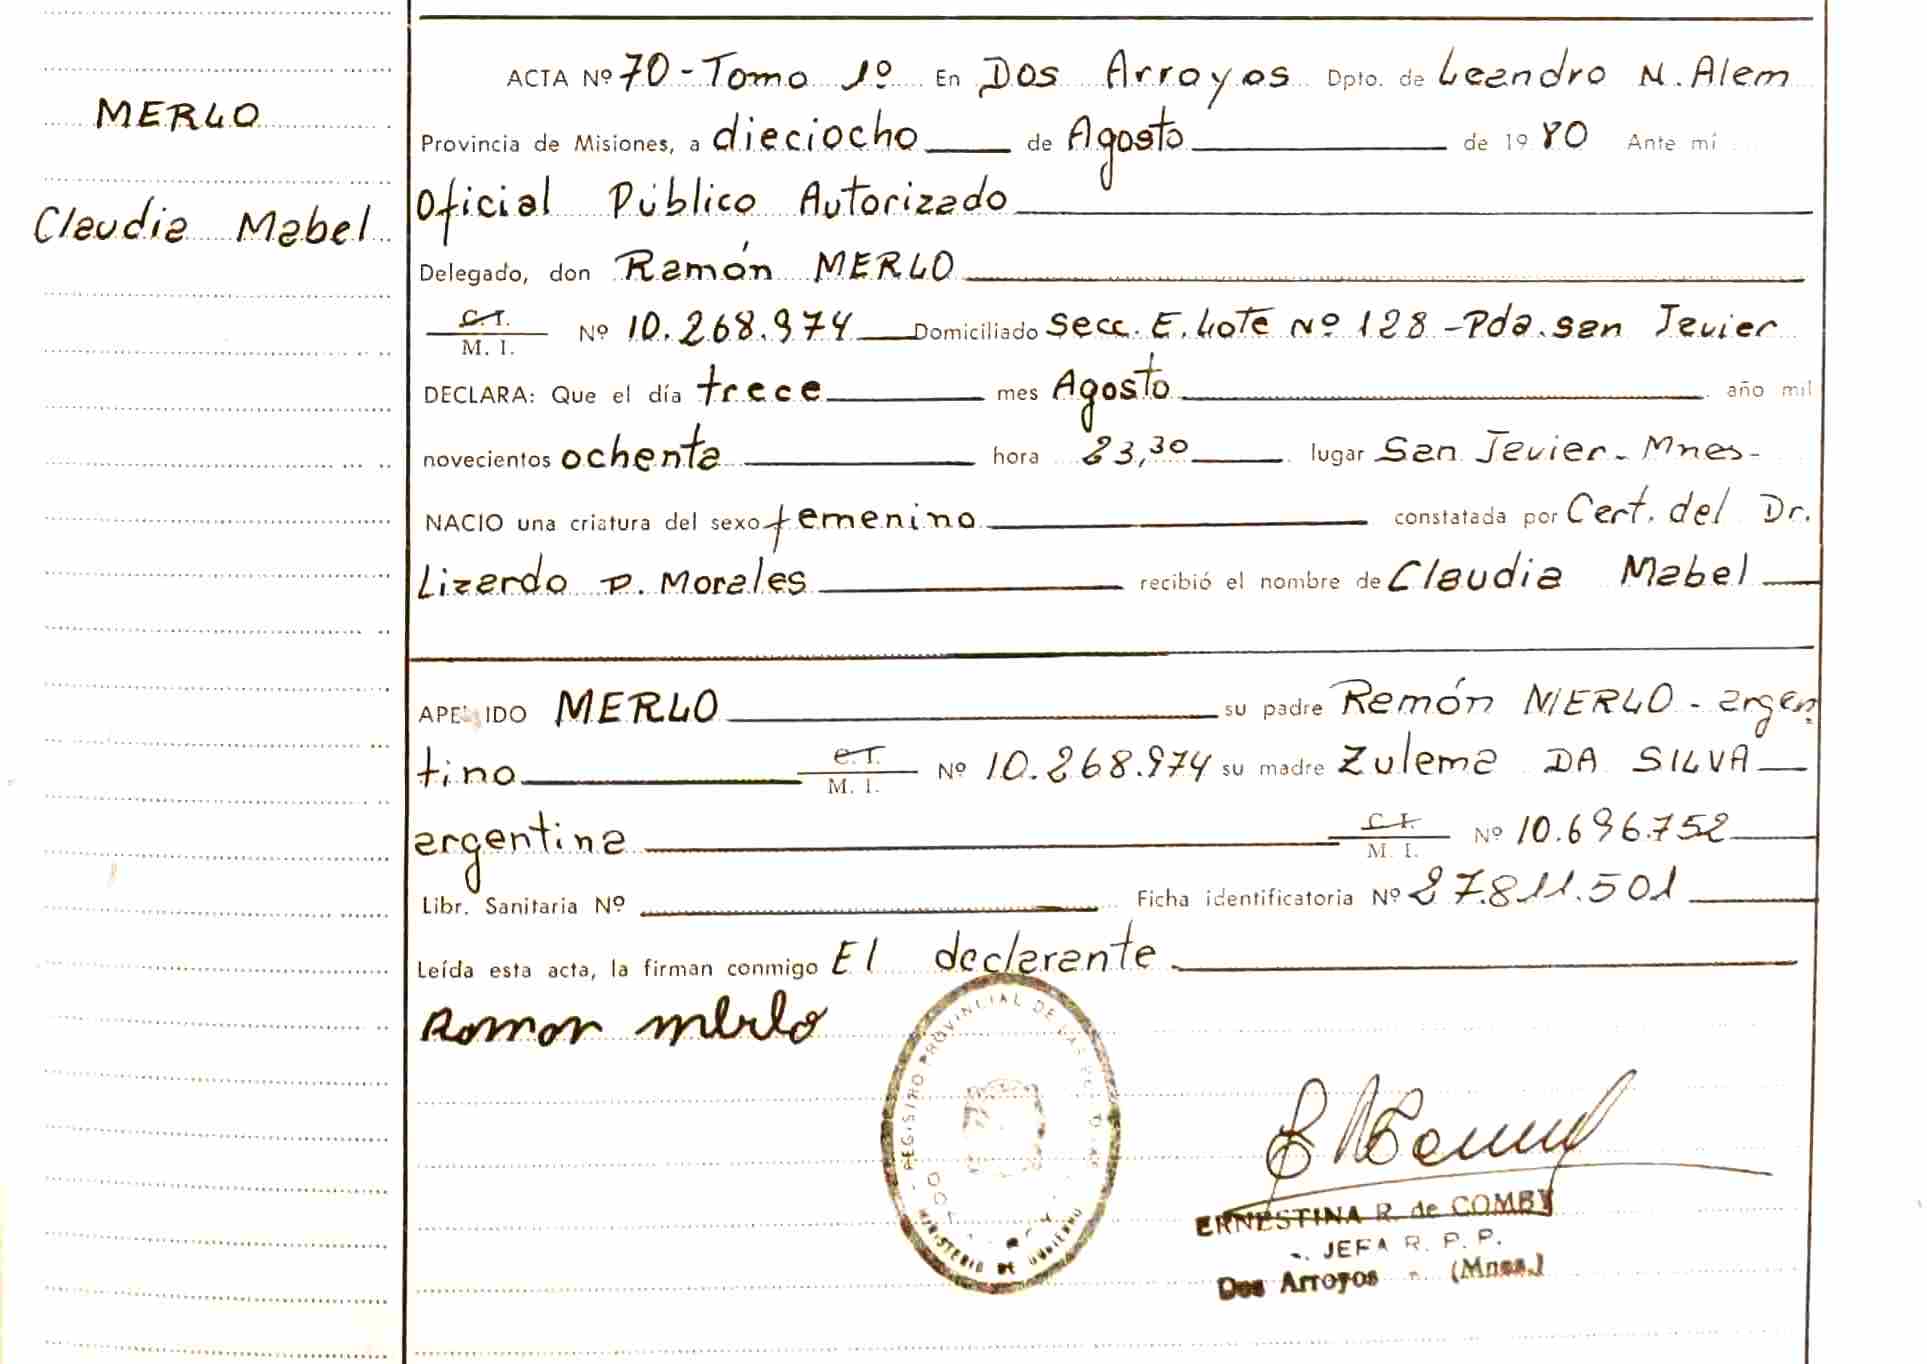 MERLO
Claudia Mabel
ACTA Nº 70 - Tomo 1º En Dos Arroyos Dpto. de Leandro N. Alem
Provincia de Misiones, a dieciocho de Agosto de 1980 Ante mí
Oficial Público Autorizado
Delegado, don Ramón MERLO
C.I. M. I. Nº 10.268.974 Domiciliado Secc. E. Lote Nº 128 - Pda. San Javier
DECLARA: Que el día trece mes Agosto año mil
novecientos ochenta hora 23,30 lugar San Javier - Mnes -
NACIO una criatura del sexo femenino constatada por Cert. del Dr.
Lizardo P. Morales recibió el nombre de Claudia Mabel
APELLIDO MERLO su padre Ramón MERLO - argen
tino C.I. M. I. Nº 10.268.974 su madre Zulema DA SILVA
argentina C.I. M. I. Nº 10.696.752
Libr. Sanitaria Nº Ficha identificatoria Nº 27.811.501
Leída esta acta, la firman conmigo El declarante
Ramon merlo
REGISTRO PROVINCIAL DE LAS PERSONAS
MINISTERIO DE GOBIERNO
ERNESTINA R. de COMBY
JEFA R. P. P.
Dos Arroyos - (Mnes.)